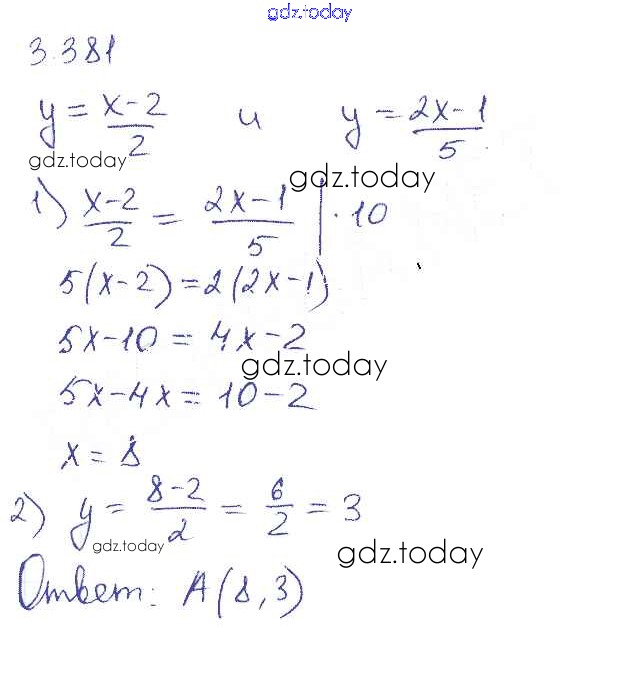 gdz.today
3.381
y = (x-2)/2 и y = (2x-1)/5
gdz.today
gdz.today
1) (x-2)/2 = (2x-1)/5 | · 10
5(x-2) = 2(2x-1)
5x-10 = 4x-2
gdz.today
5x-4x = 10-2
x = 8
2) y = (8-2)/2 = 6/2 = 3
gdz.today
gdz.today
Ответ: A(8,3)